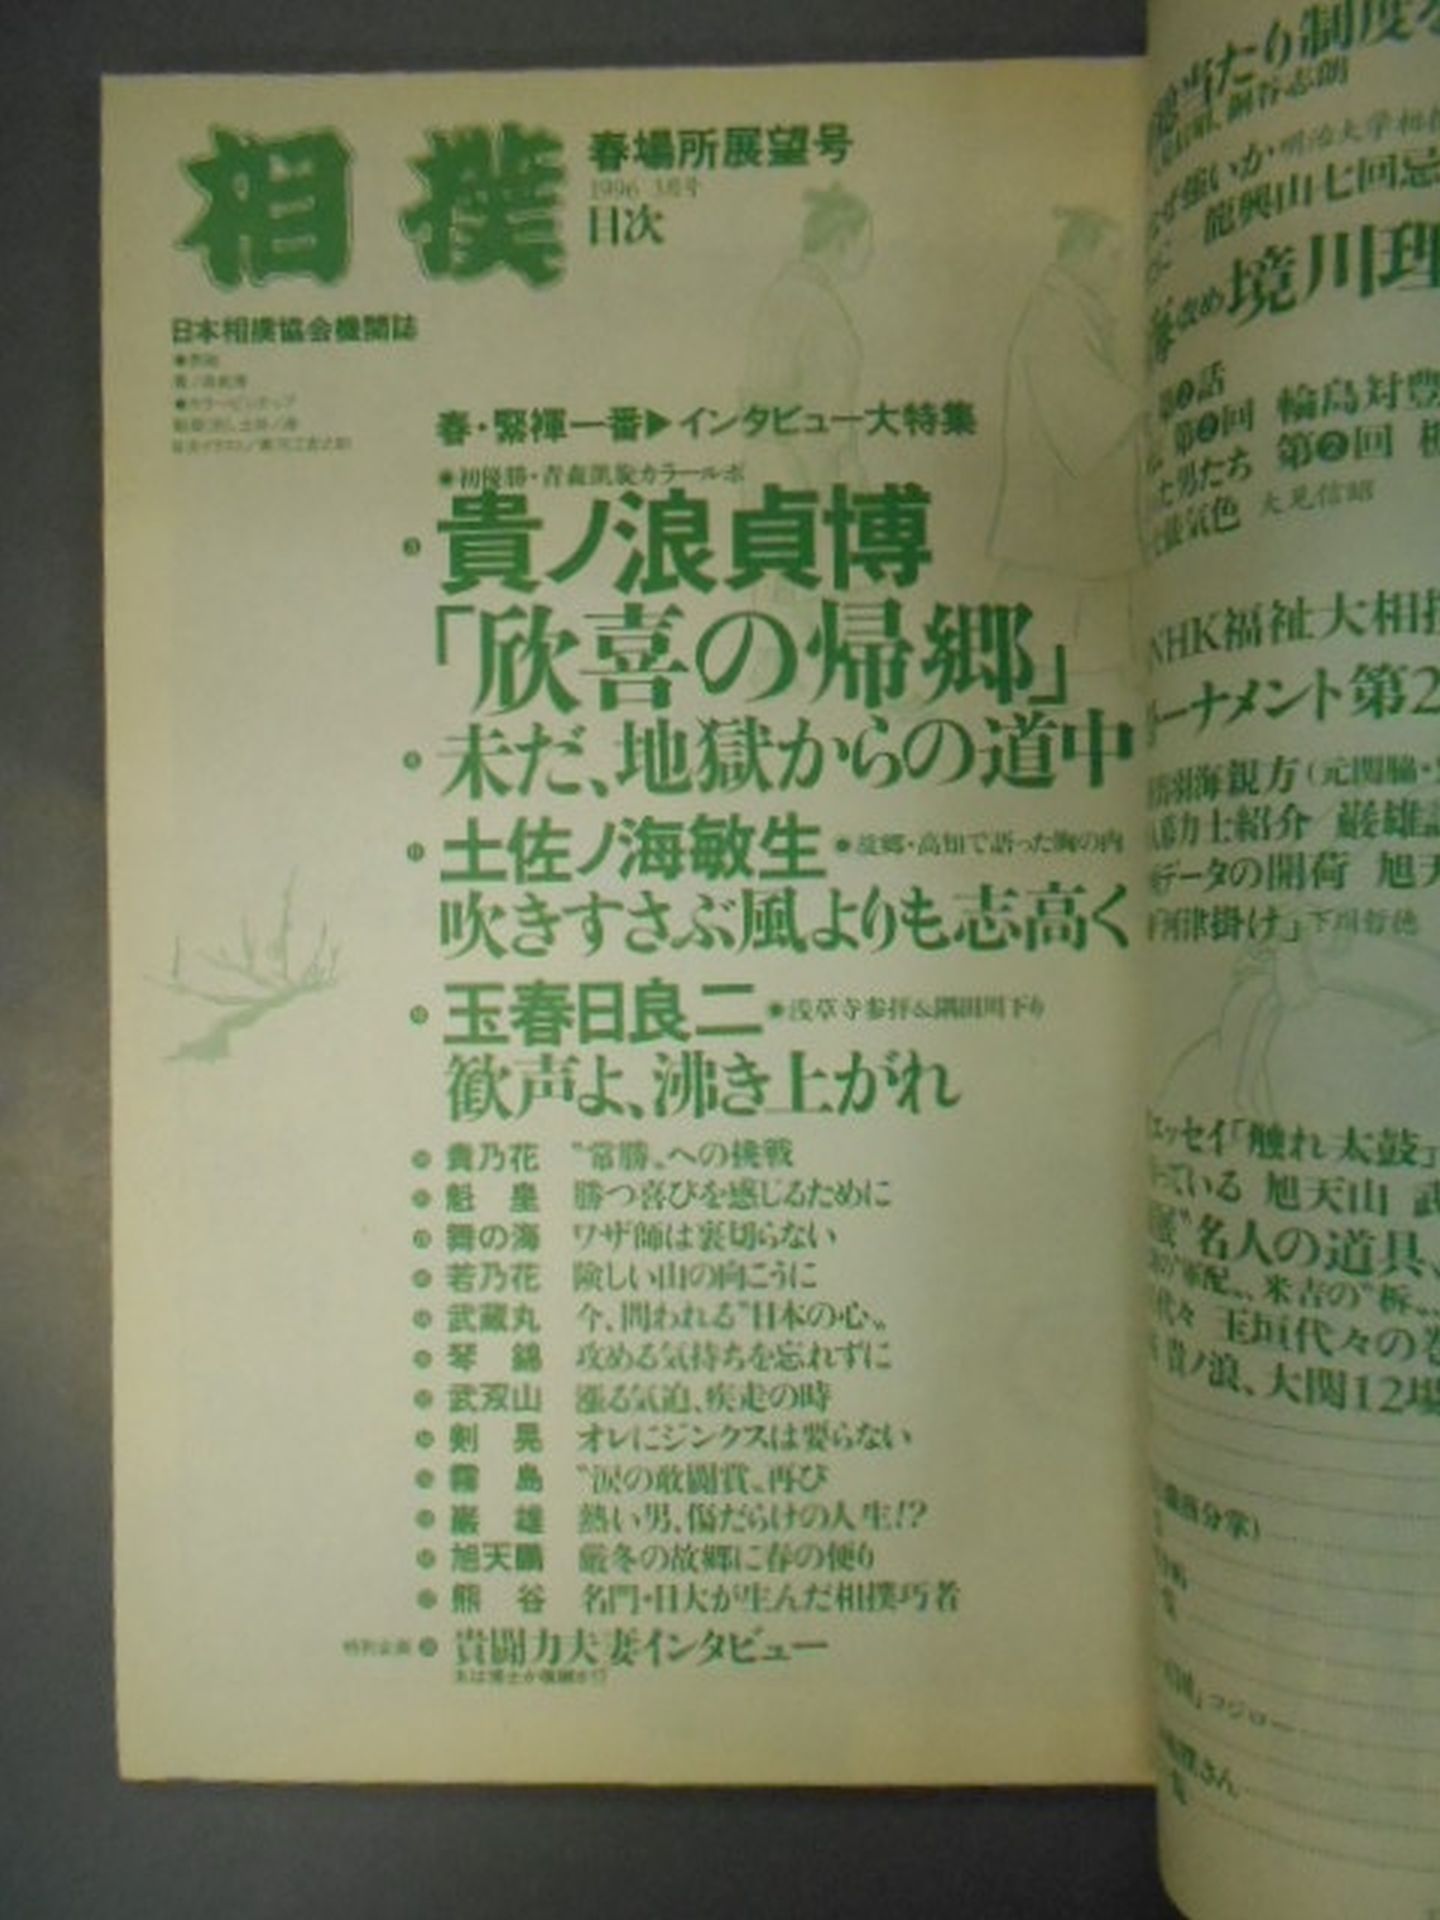 相撲
春場所展望号
1996 3月号
目次
日本相撲協会機関誌
春・緊褌一番▶インタビュー大特集
●初優勝・青森凱旋カラールポ
貴ノ浪貞博
「欣喜の帰郷」
未だ、地獄からの道中
土佐ノ海敏生 ●故郷・高知で語った胸の内
吹きすさぶ風よりも志高く
玉春日良二 ●浅草寺参拝&隅田川下り
歓声よ、沸き上がれ
貴乃花 〝常勝〟への挑戦
魁皇 勝つ喜びを感じるために
舞の海 ワザ師は裏切らない
若乃花 険しい山の向こうに
武蔵丸 今、問われる〝日本の心〟
琴錦 攻める気持ちを忘れずに
武双山 漲る気迫、疾走の時
剣晃 オレにジンクスは要らない
霧島 〝涙の敢闘賞〟再び
巌雄 熱い男、傷だらけの人生!?
旭天鵬 厳冬の故郷に春の便り
熊谷 名門・日大が生んだ相撲巧者
特別企画 貴闘力夫妻インタビュー
当たり制度
銅谷志朗
強いか 明治大学相
龍興山七回忌
改め境川理
第❷話
第❷回 輪島対豊
た男たち 第❷回
気色 大見信昭
NHK福祉大相撲
トーナメント第2
海親方(元関脇・
力士紹介/巌雄
データの開荷 旭天
河津掛け」下川哲徳
エッセイ「触れ太鼓」
っている 旭天山 武
〝名人の道具、
軍配〟、米吉の〝柝
代々 玉垣代々の巻
貴ノ浪、大関12場
分掌)
コジロー
さん